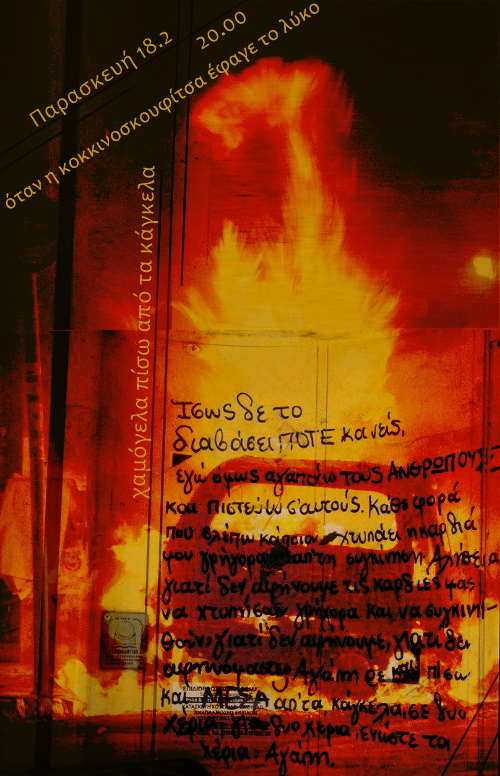 Παρασκευή 18.2
20.00
όταν η κοκκινοσκουφίτσα έφαγε το λύκο
χαμόγελα πίσω από τα κάγκελα
Ίσως δε το
διαβάσει ΠΟΤΕ κανείς,
εγώ όμως αγαπάω τους ΑΝΘΡΩΠΟΥΣ
και πιστεύω σ'αυτούς. Κάθε φορά
που βλέπω κάποιον χτυπάει η καρδιά
μου γρήγορα απ'τη συγκίνηση Αλήθεια
γιατί δεν αφήνουμε τις καρδιές μας
να χτυπήσουν γρήγορα και να συγκινη-
θούν, γιατί δεν αφήνουμε, γιατί δεν
αφηνόμαστε; Αγάπη ρε και πίσω
και ΜΕΣΑ απ'τα κάγκελα, σε δυο
χέρια, δυο χέρια, ενώστε τα
χέρια: Αγάπη.